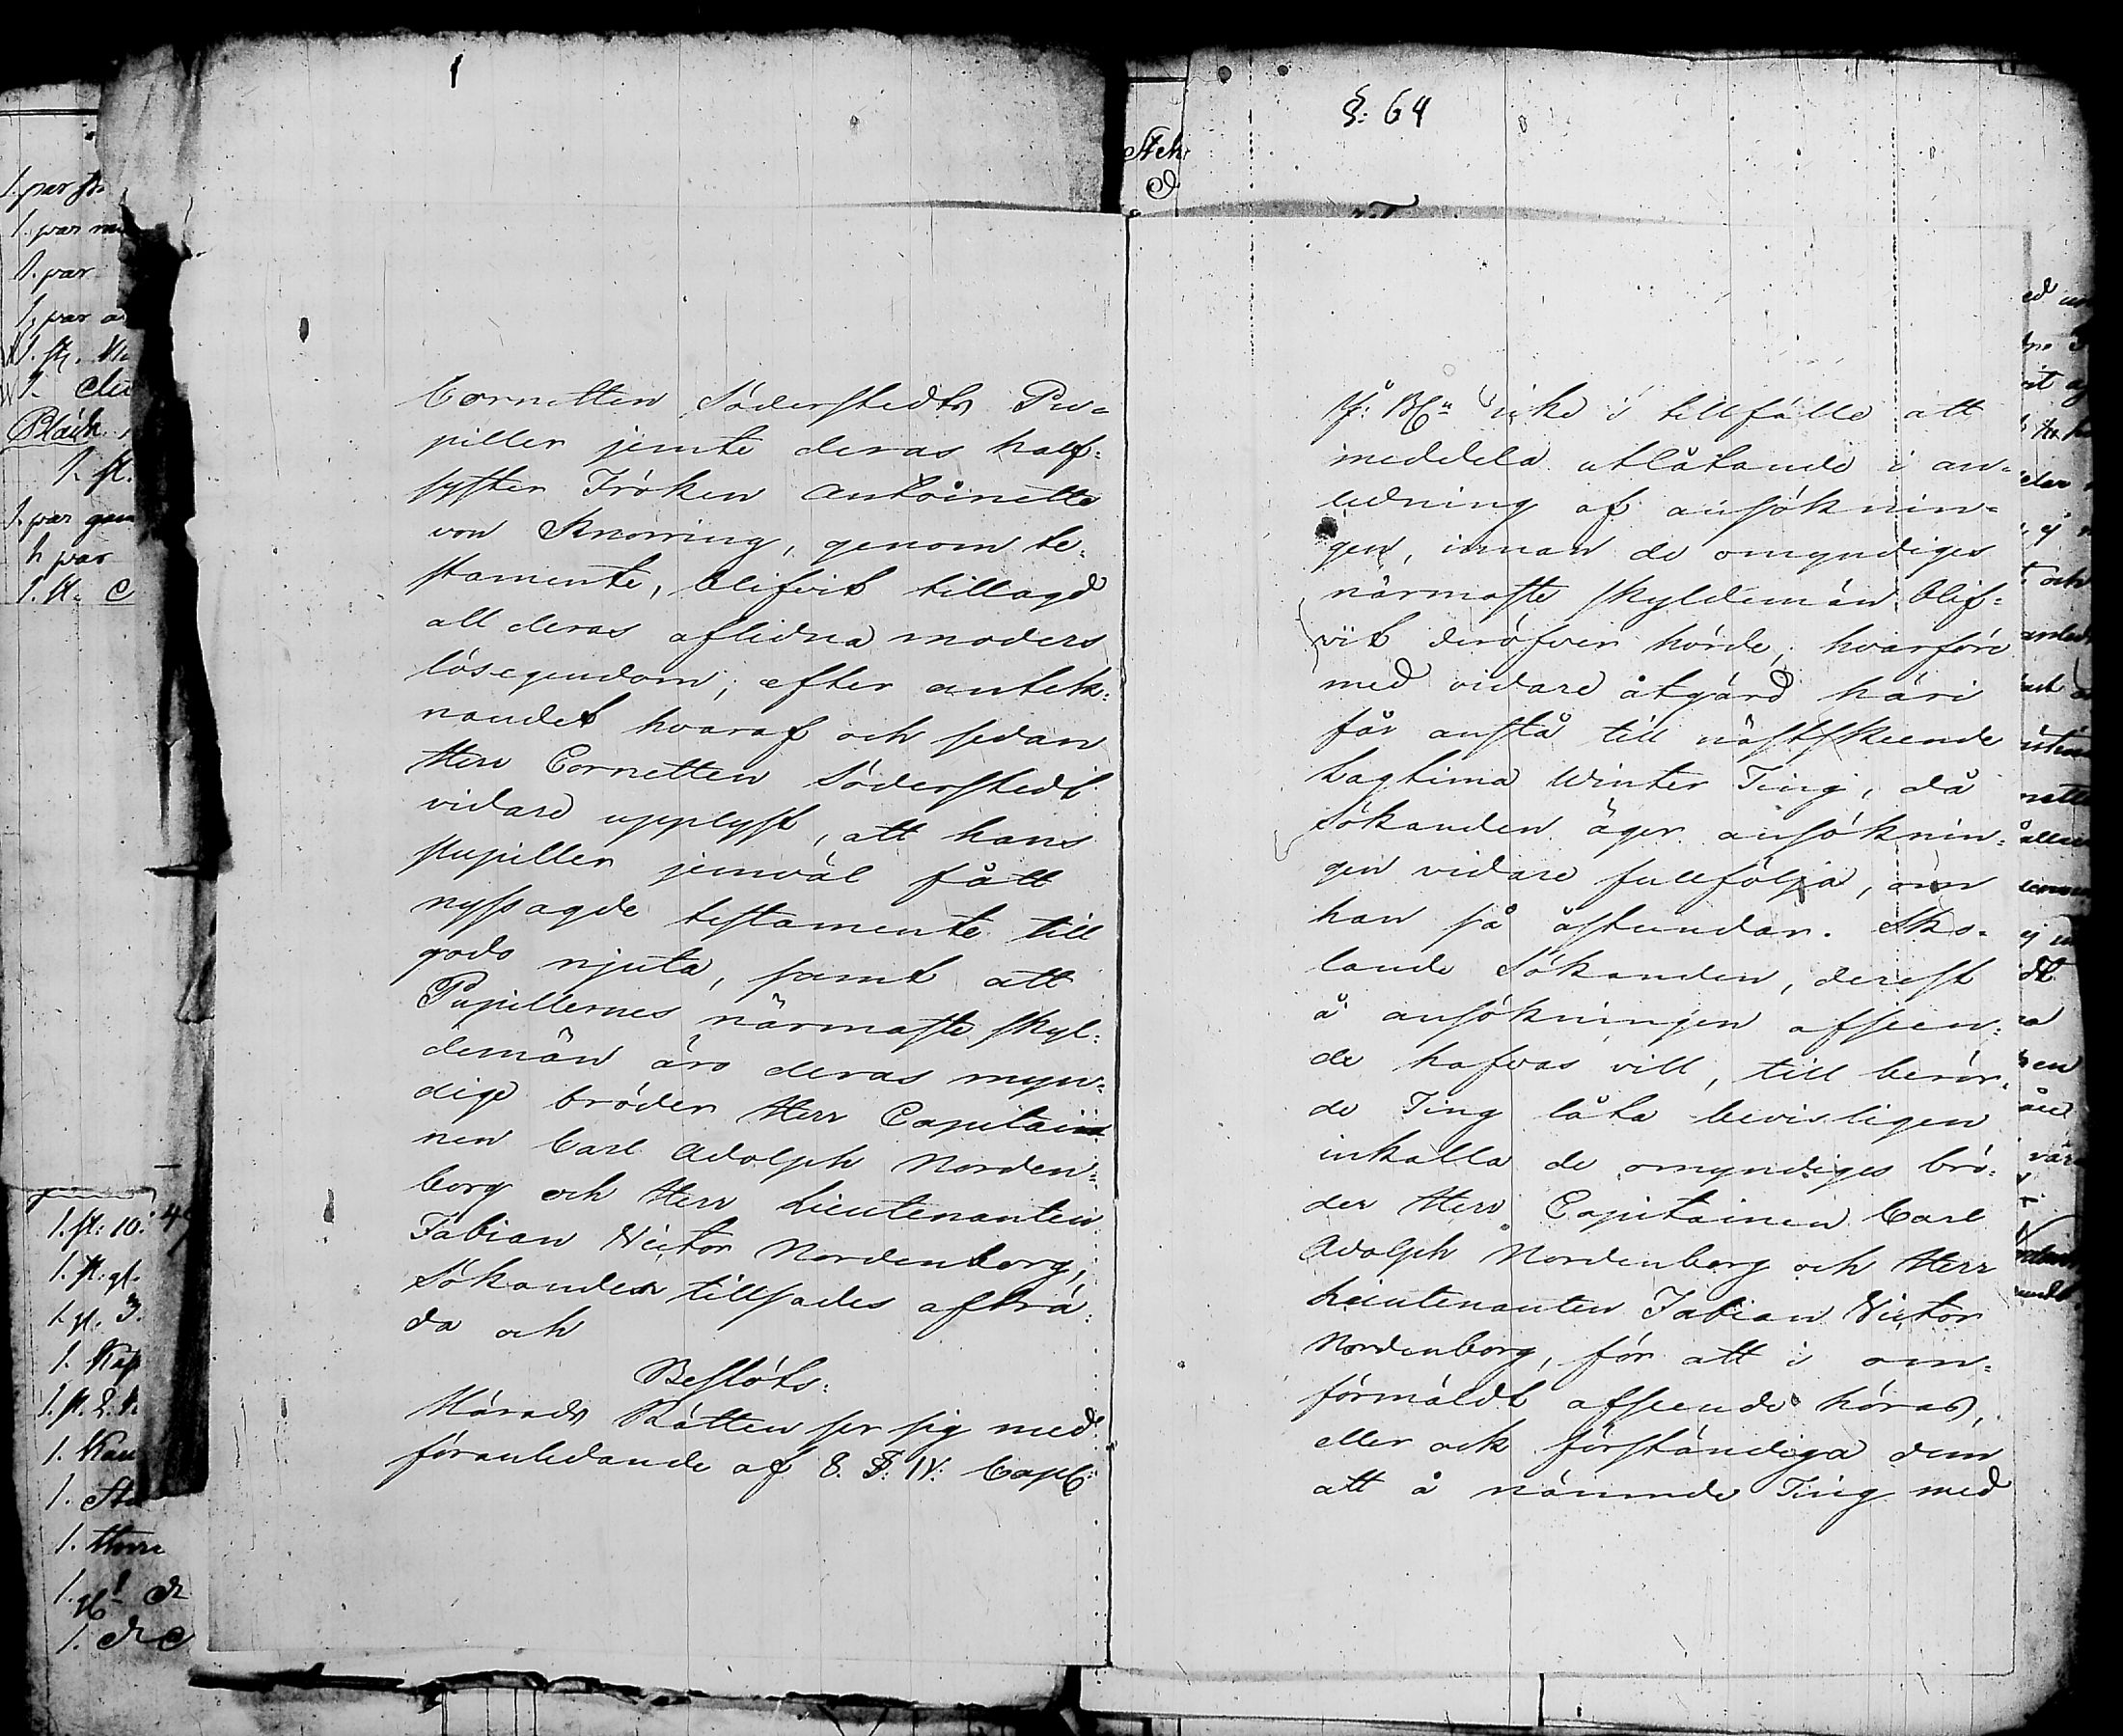 Cornetten Söderstedts Pu=
piller jemte deras half=
syster Fröken Antoinette
von Knorring, genom te=
stamente, blifvit tillagd
all deras aflidna moders
lösegendom; efter antek=
nandet hvaraf och sedan
Herr Cornetten Söderstedt
vidare upplyst, att hans
pupiller jemväl fått
nyssagde testamente till
godo njuta, samt att
Pupillernes närmaste skyl=
demän äro deras myn=
dige bröder Herr Capitai
nen Carl Adolph Norden=
borg och Herr Lieutenanten
Fabian Victor Nordenborg,
Sökanden tillsades afträ=
da och
Beslöts:
Härads Rätten ser sig med
föranledande af 8. §. IV. Cap:
§: 64
icke i tillfälle att
meddela utlåtande i an=
ledning af ansöknin=
gen, innan de omyndiges
närmaste skyldemän blif=
vit deröfver hörde; hvarföre
med vidare åtgärd häri
får anstå till nästskeende
Lagtima Winter Ting, då
Sökanden äger ansöknin=
gen vidare fullfölja, om
han så åstundar. Sko=
lande Sökanden, derest
å ansökningen afseen=
de hafvas vill, till berör=
de Ting låta bevisligen
inkalla de omyndiges brö=
der Herr Capitainen Carl
Adolph Nordenborg och Herr
Lieutenanten Fabian Victor
Nordenborg, för att i om=
förmäldt afseende höras,
eller ock förständiga dem
att å nämnde Ting med